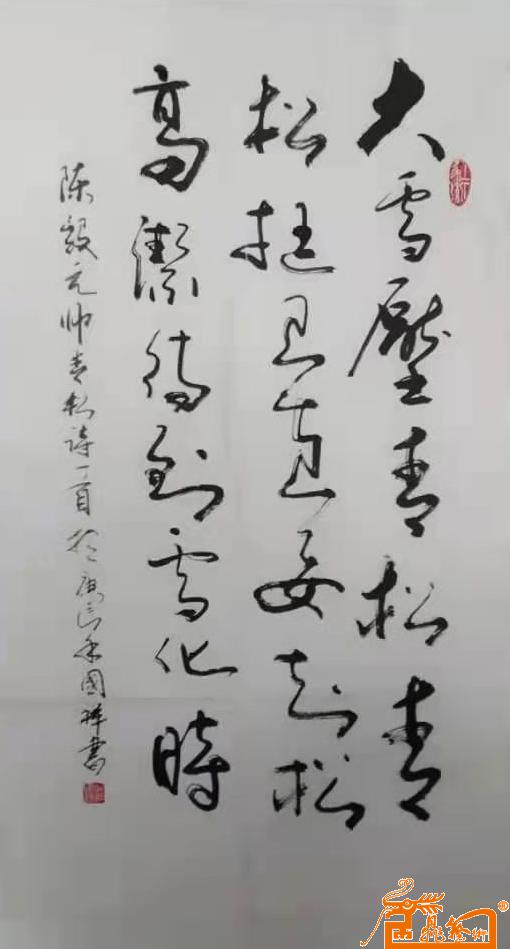 大雪壓青松青
松挺且直要知松
高潔待到雪化時
陈毅元帅青松诗一首於庚子国祥書